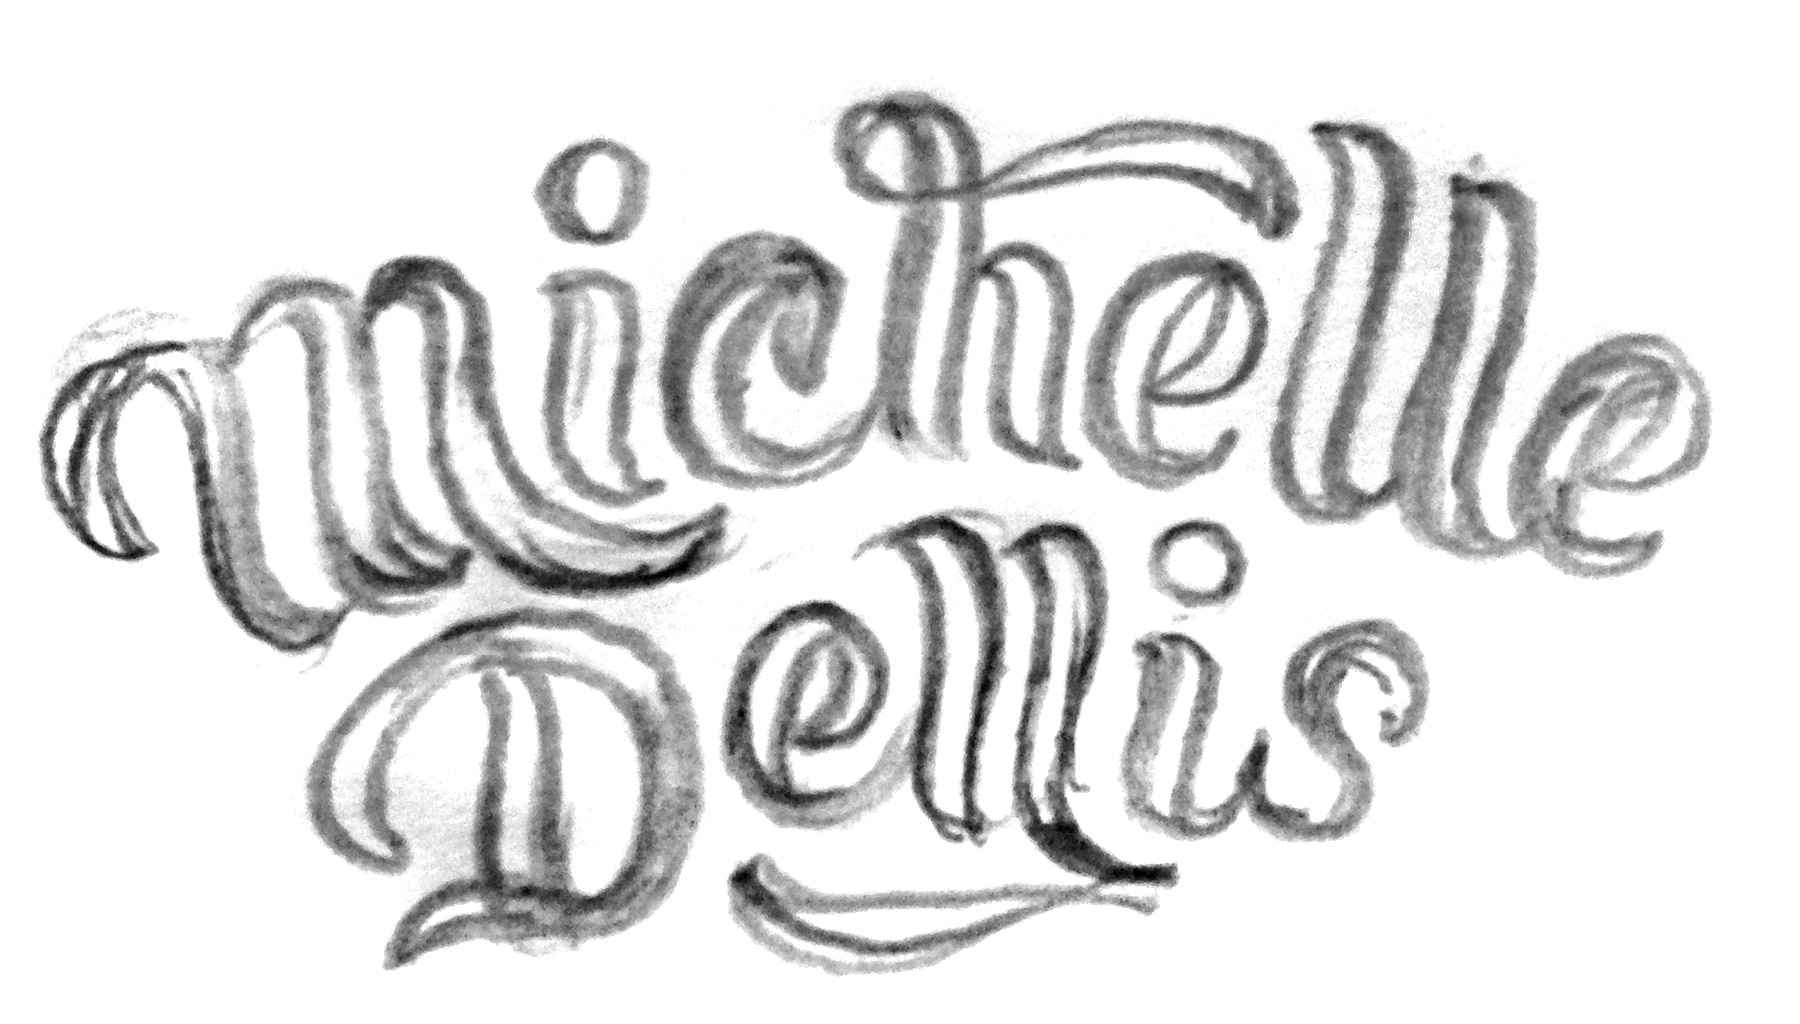 Michelle
Dellis